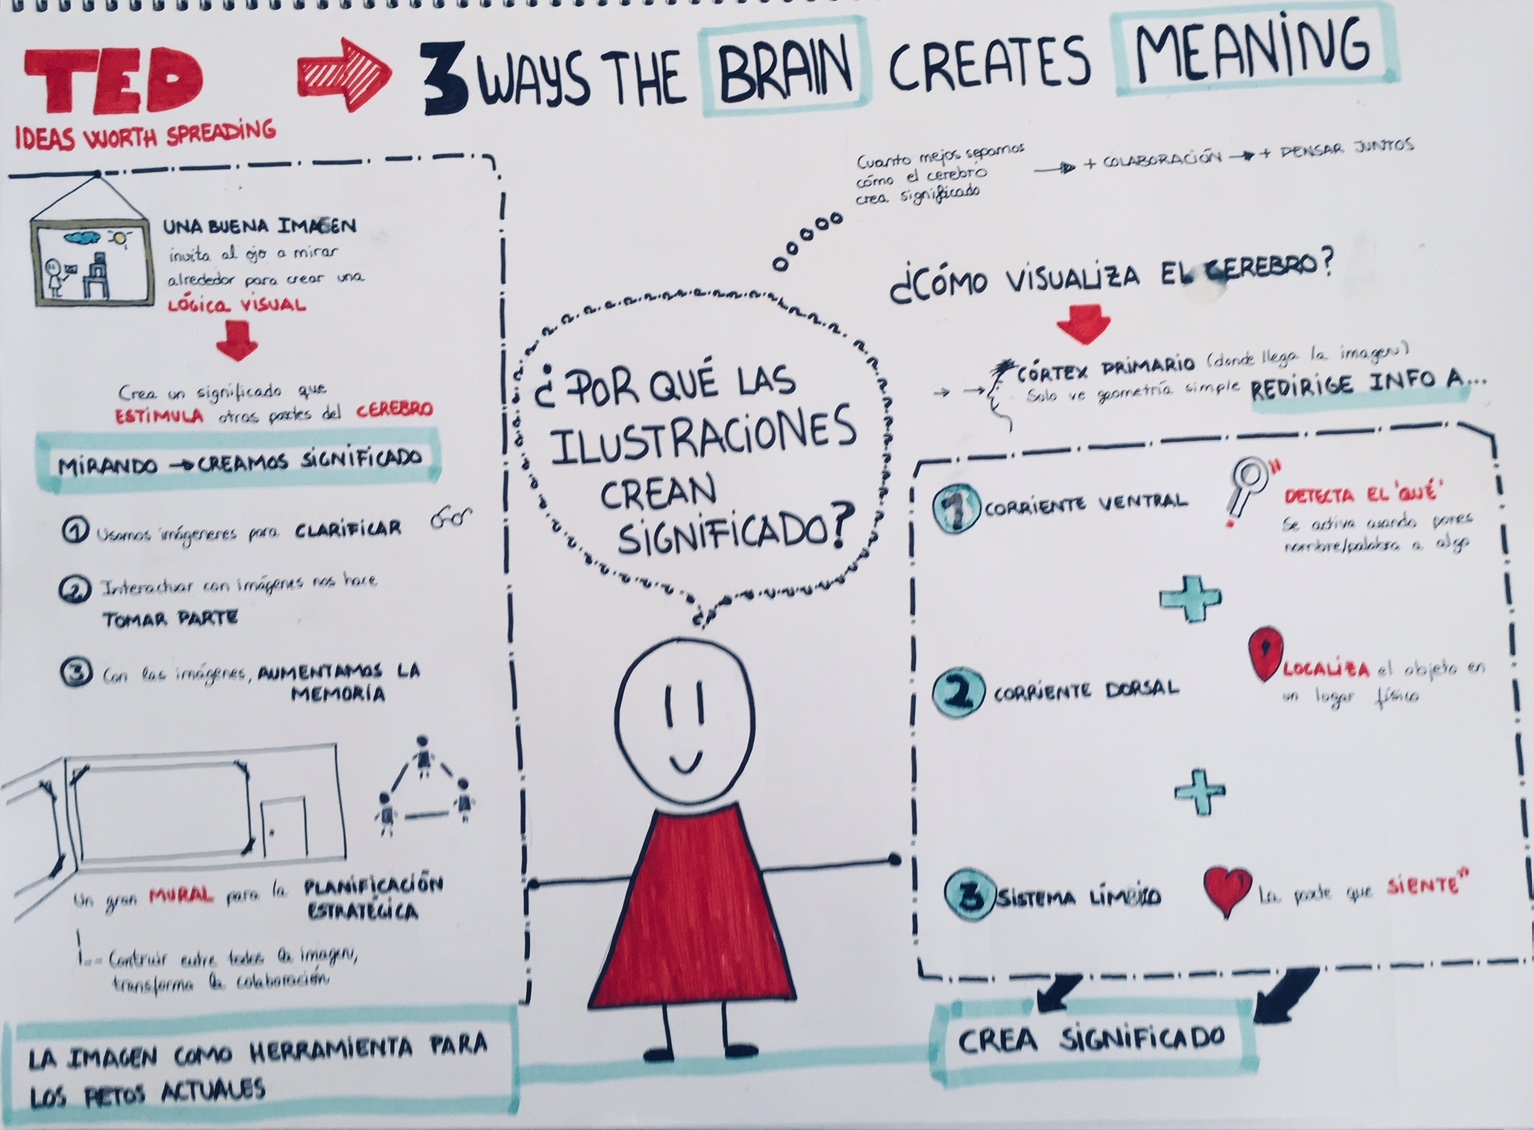 TED
IDEAS WORTH SPREADING
3 WAYS THE BRAIN CREATES MEANING
Cuanto mejos sepamos
cómo el cerebro
crea significado
+ COLABORACIÓN → + PENSAR JUNTOS
UNA BUENA IMAGEN
invita al ojo a mirar
alrededor para crear una
LÓGICA VISUAL
Crea un significado que
ESTIMULA otras partes del CEREBRO
MIRANDO → CREAMOS SIGNIFICADO
1 Usamos imágeneres para CLARIFICAR
2 Interactuar con imágenes nos hace
TOMAR PARTE
3 Con las imágenes, AUMENTAMOS LA
MEMORIA
Un gran MURAL para la PLANIFICACIÓN
ESTRATÉGICA
Contruir entre todos la imagen,
transforma la colaboración
LA IMAGEN COMO HERRAMIENTA PARA
LOS RETOS ACTUALES
¿POR QUÉ LAS
ILUSTRACIONES
CREAN
SIGNIFICADO?
¿CÓMO VISUALIZA EL CEREBRO?
CÓRTEX PRIMARIO (donde llega la imagen)
Solo ve geometría simple REDIRIGE INFO A...
1 CORRIENTE VENTRAL
DETECTA EL 'QUÉ'
Se activa cuando pones
nombre/palabra a algo
2 CORRIENTE DORSAL
LOCALIZA el objeto en
un lugar físico
3 SISTEMA LÍMBICO
La parte que SIENTE"
CREA SIGNIFICADO